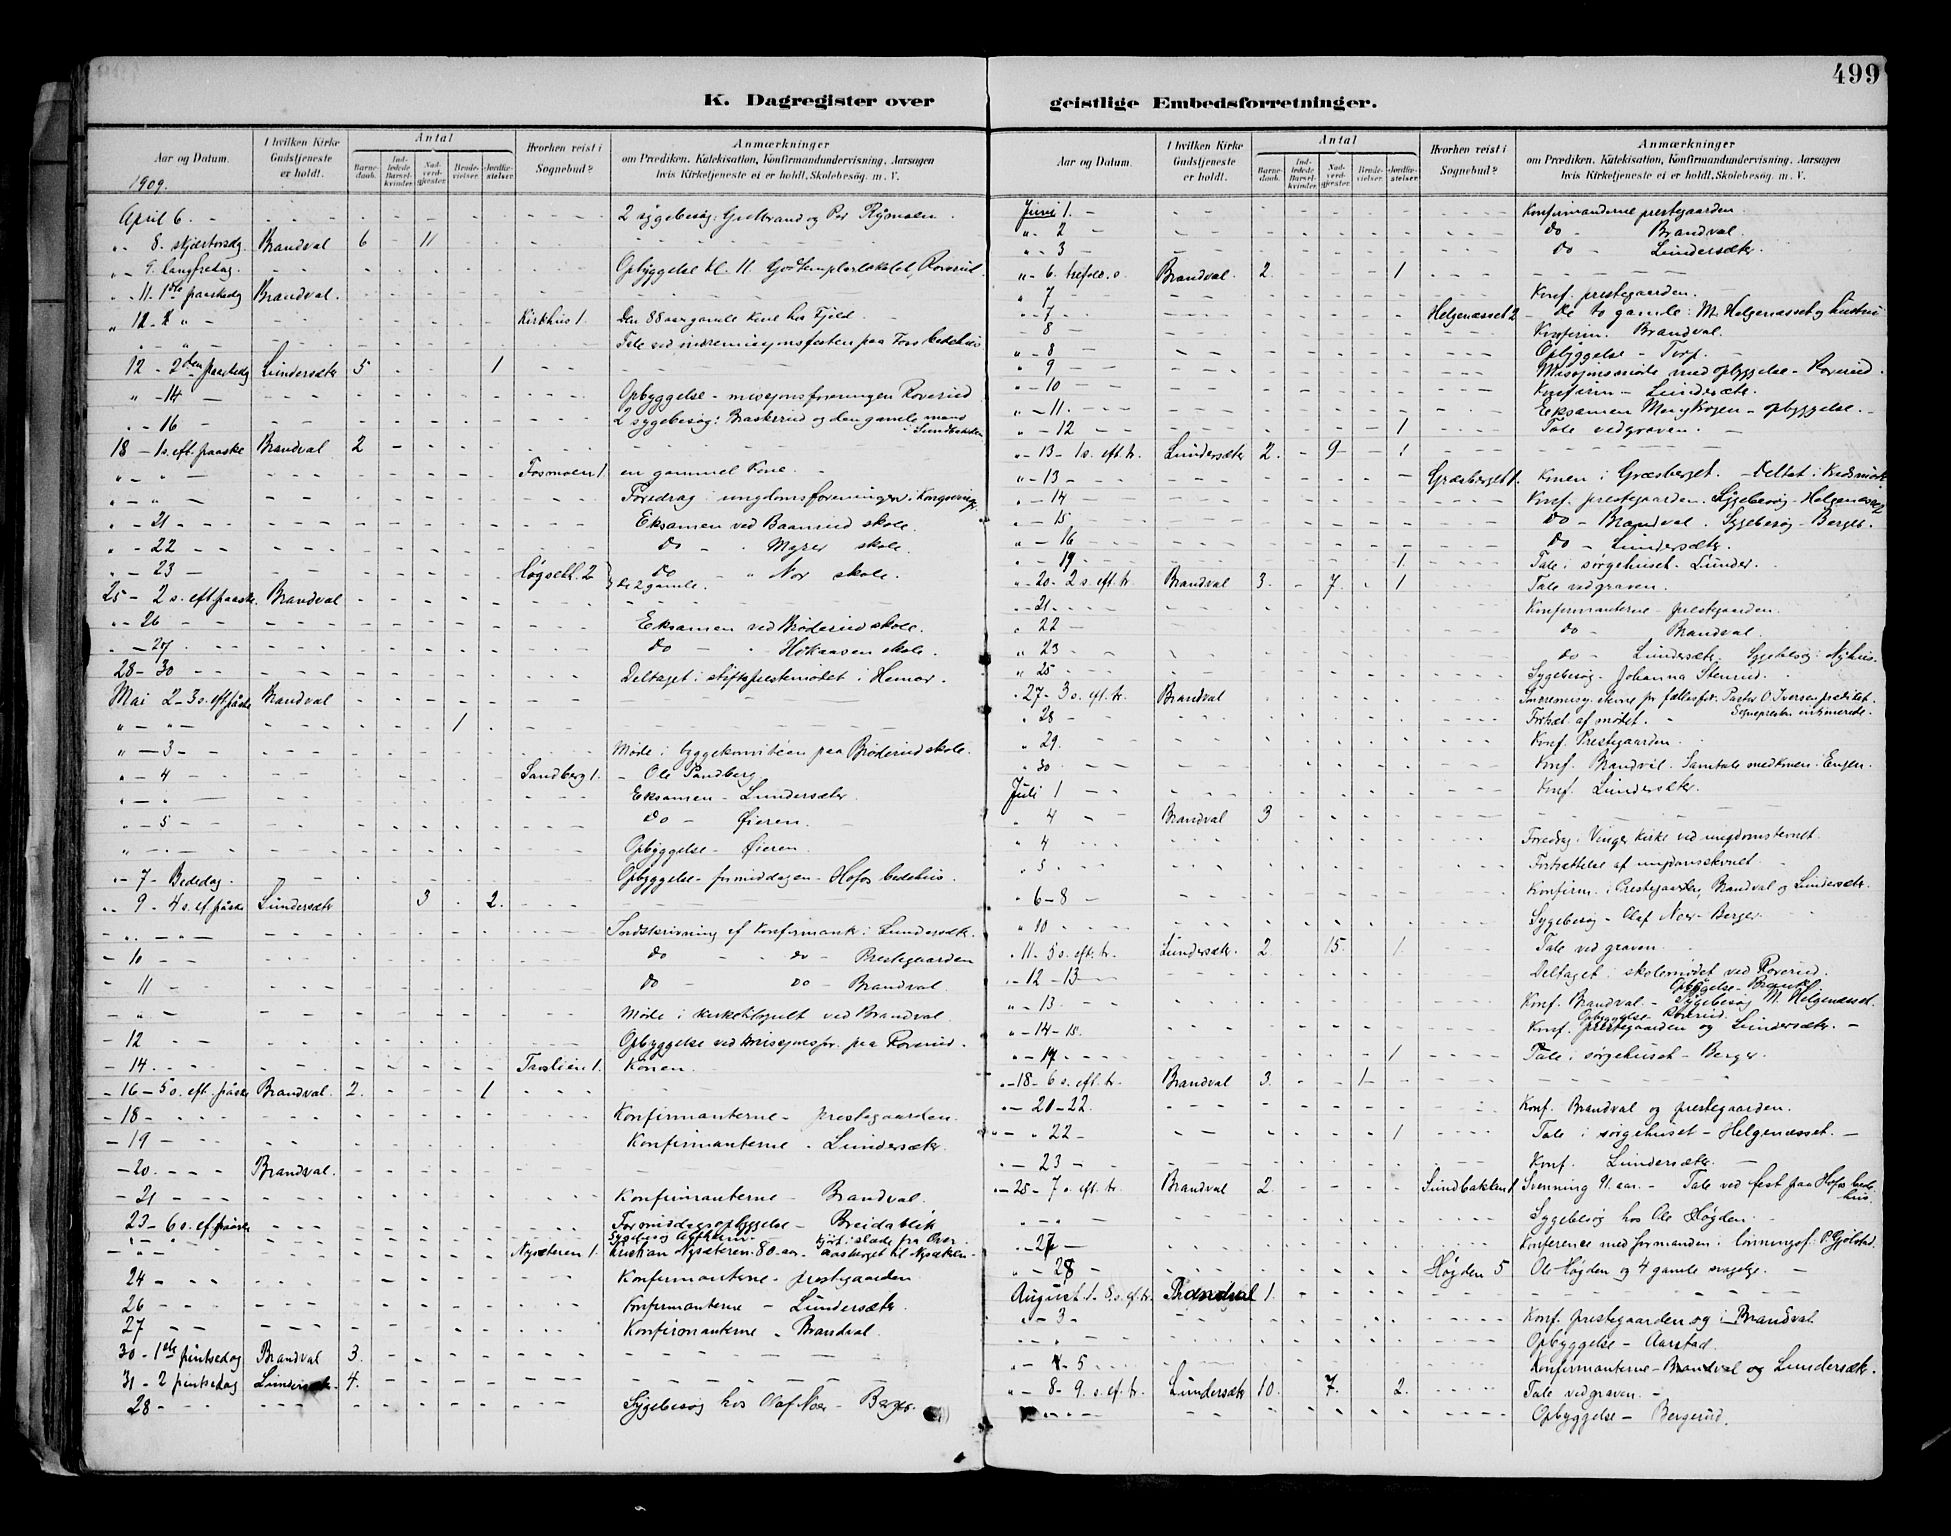 499
K. Dagregister over geistlige Embedsforretninger.
Aar og Datum.
I hvilken Kirke Gudstjeneste er holdt.
Antal
Barnedaab.
Indledede Barselkvinder.
Nadverdgjester.
Brudevielser.
Jordfæstelser.
Hvorhen reist i Sognebud?
Anmærkninger
om Prædiken, Katekisation, Konfirmandundervisning, Aarsagen
hvis Kirketjeneste ei er holdt, Skolebesøg, m. V.
1909.
April 6. 2 sygebesøg: Gudbrand og Per Rismoen.
" 8. skjærtorsdg Brandval 6 - 11
" 9. langfredag. Opbyggelse kl. 11 Godtemplarlokalet, Roverud.
" 11. 1ste paaskedg Brandval.
" 12. 2 " Kirkhus 1. Den 88 aar gamle Kone hos Fjeld
Tale ved indremisjonsfesten paa Foss bedehus
12 - 2den paaskedg Lundersæter 5 1
" - 14 - Opbyggelse - misjonsforeningen Roverud
" - 16 - 2 sygebesøg: Baskerud og den gamle mand
i Sundbakken
18 - 1 s. eft. paaske Brandval 2
" - " - Fosmoen 1. en gammel Kone.
" - " - Foredrag i ungdomsforeningen i Kongsvinger.
" - 21 - Eksamen ved Baanrud skole
" - 22 - Do - " Myrer skole.
" - 23 - 2 Do - " Nor skole.
de 2 gamle.
25 - 2 s. eft. paaske. Brandval
" - 26 Eksamen ved Brøderud skole.
" - 27 Do - " Høkaasen skole.
28 - 30 Deltaget i stiftsprestemötet i Hamar.
Mai 2 - 3 s. eft påske Brandval
" - " - 1
" - 3 - Möde i byggekomitéen paa Brøderud skole.
" - 4 Sandberg 1. - Ole Sandberg
Eksamen - Lundersæter
" - 5 Do - Øieren.
Opbyggelse - Øieren.
" - 7 - Bededag. Opbyggelse - formiddagen - Hofos bedehus.
" 9 - 4 s. ef. påske Lundersæter 3 2.
Indskrivning af Konfirmant. i Lundersæter.
- 10 Do " Do - Prestegaarden
- 11 Do - Do - Brandval.
- " - Möde i kirketilsynet ved Brandval.
- 12 Opbyggelse ved misjonsfor. paa Roverud.
- 14. 1. Konen.
- 16 - 5 s. eft. påske Brandval 2. 1
- 18 - Konfirmanterne - prestegaarden.
- 19 - Konfirmanterne - Lundersæter.
- 20. Brandval.
- 21 Konfirmanterne - Brandval.
23 - 6 s. ef. påaske Formiddagsopbyggelse - Breidablik
Nysæteren 1. Kristian Nysæteren 80 aar.
24 - Konfirmanterne - prestegaarden
26 - Konfirmanterne - Lundersæter.
27 - Konfirmanterne - Brandval.
30 - 1ste pintsedag Brandval 3.
31 - 2 pintsedag Lundersæter 4.
28 - Sygebesøg hos Olaf Noer - Berger.
Juni 1. - Konfirmanderne prestegaarden.
" - 2 Do - Brandval.
" - 3 Do - Lundersæter
" - 6. trefold. s. Brandval. 2. 1
" 7 Konf. prestegaarden.
" - 7 Helgenæsset 2 - De to gamle: M. Helgenæsset og hustru
8 Konfirm. Brandval.
" - 8 Opbyggelse - Torp.
" 9 Misjonsmøte med opbyggelse - Roverud.
" - 10 Konfirm - Lundersæter.
" - 11. Eksamen MengKogen - opbyggelse.
" - 12 1 Tale ved graven.
" - 13 - 1 s. eft. tr. Lundersæter 2. 9 1
" - 13 Græsberget 1. Konen i Græsberget.
" - 14 Konf. prestegaarden. Sygebesøg - Helgenæsset
" - 15 Do - Brandval. Sygebesøg - Berget.
" - 16 Do - Lundersæter.
" - 19 1. Tale i sørgehuset - Lunder.
" - 20 - 2 s. eft. tr. Brandval 3. 7. 1 Tale ved graven.
" - 21. Konfirmanterne - prestegaarden.
" 22 Do - Brandval.
" 23 Do - Lundersæter. Sygebesøg i Nyhus.
" 25 Sygebesøg - Johanna Stenrud.
" 27 - 3 s. eft. tr. Brandval Pastor O. Iversen prædiket.
" 28 Fortsat af mødet.
" 29. Konf. Prestegaarden.
" 30 Konf. Brandval. Samtale med konen Engen.
Juli 1 Konf. Lundersæter.
" 4 Brandval 3
" 4 Foredrag i Vinger kirke ved ungdomsstevnet.
" 5 Fortsættelse af ungdomsstevnet
" 6 - 8 Konfirm. i Prestegaarden, Brandval og Lundersæter.
" 10 Sygebesøg - Olaf Noer - Berger
" 11 - 5 s. eft. tr. Lundersæter. 2 15. 1. Tale ved graven.
" - 12 - 13 Deltaget i skolemødet ved Roverud.
" - 13 Konf. Brandval - Sygebesøg M. Helgenæsset.
Opbyggelse - Roverud.
" - 14 - 15. Konf. prestegaarden og Lundersæter.
" - 17 1 Tale i sørgehuset - Berger.
" - 18 - 6 s. eft. tr. Brandval 3. 1
" - 21 - 22. Konf. Brandval og prestegaarden.
" - " 22 1 Tale i sørgehuset - Helgenæsset.
" - 23 Konf. Lundersæter.
" - 25 - 7 s. eft. tr. Brandval 2. Sundbakken 1. Svenning 91 aar. - Tale ved fest paa Hofos bedehus.
Sygebesøg hos Ole Høgden.
" - 27 - Konference med formanden i P. Gjølstad.
" - 28 - Høgden 5 Ole Høgden og 4 gamle svagelige.
August 1. 8. s. ef. tr. Brandval 1.
" - 3 Konf. prestegaarden og i Brandval
Opbyggelse - Aarstad.
" - 4 - 5 Konfirmanterne - Brandval og Lundersæter.
" - 8 - 9. s. ef. tr. Lundersæter 10. 7. 2. Tale ved graven.
Opbyggelse - Bergerud.